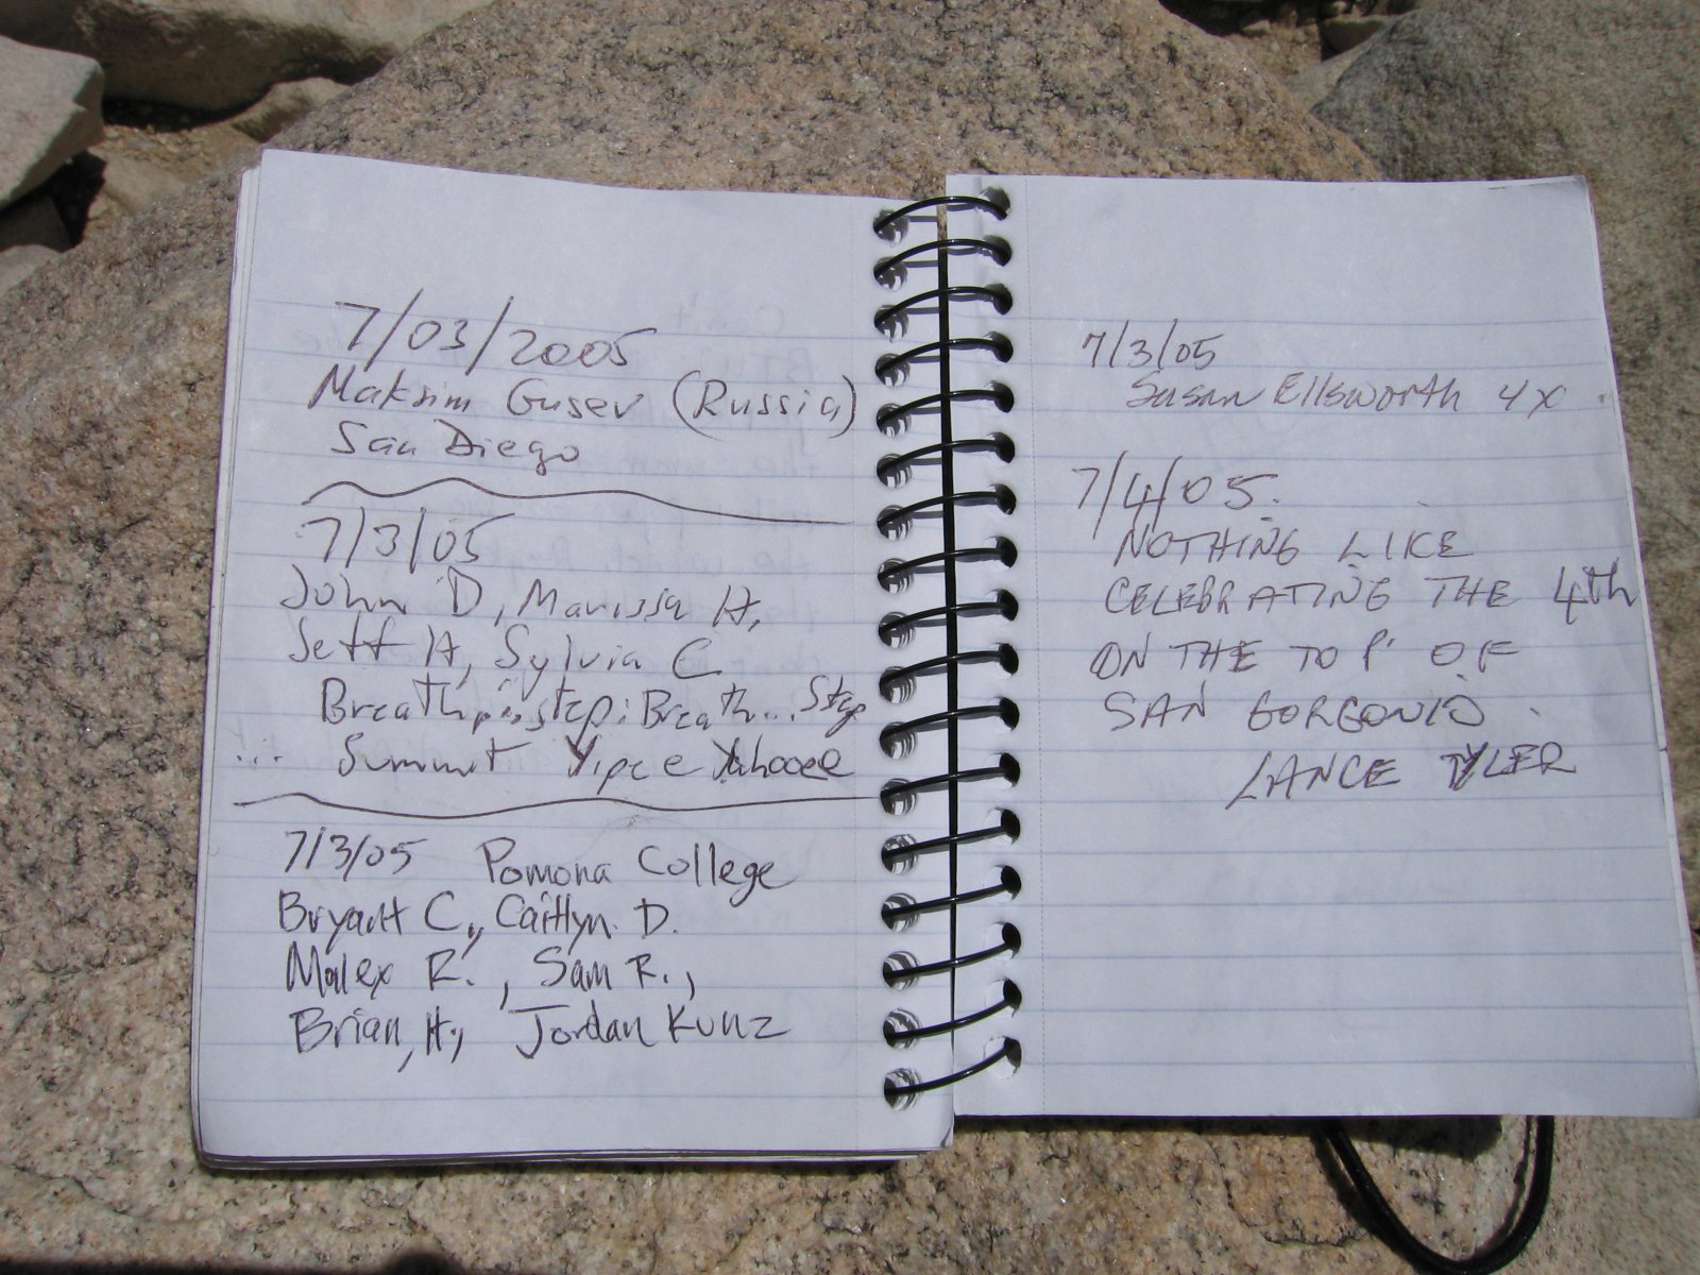 7/03/2005
Maksim Gusev (Russia)
San Diego
7/3/05
John D, Marissa H,
Jeff H, Sylvia C
Breath... step: Breath... Step
... Summit Yipee Yahooee
7/3/05 Pomona College
Bryant C., Caitlyn D.
Malex R., Sam R.,
Brian, H., Jordan Kunz
7/3/05
Susan Ellsworth 4x
7/4/05.
NOTHING LIKE
CELEBRATING THE 4th
ON THE TOP OF
SAN GORGONIO.
LANCE TYLER